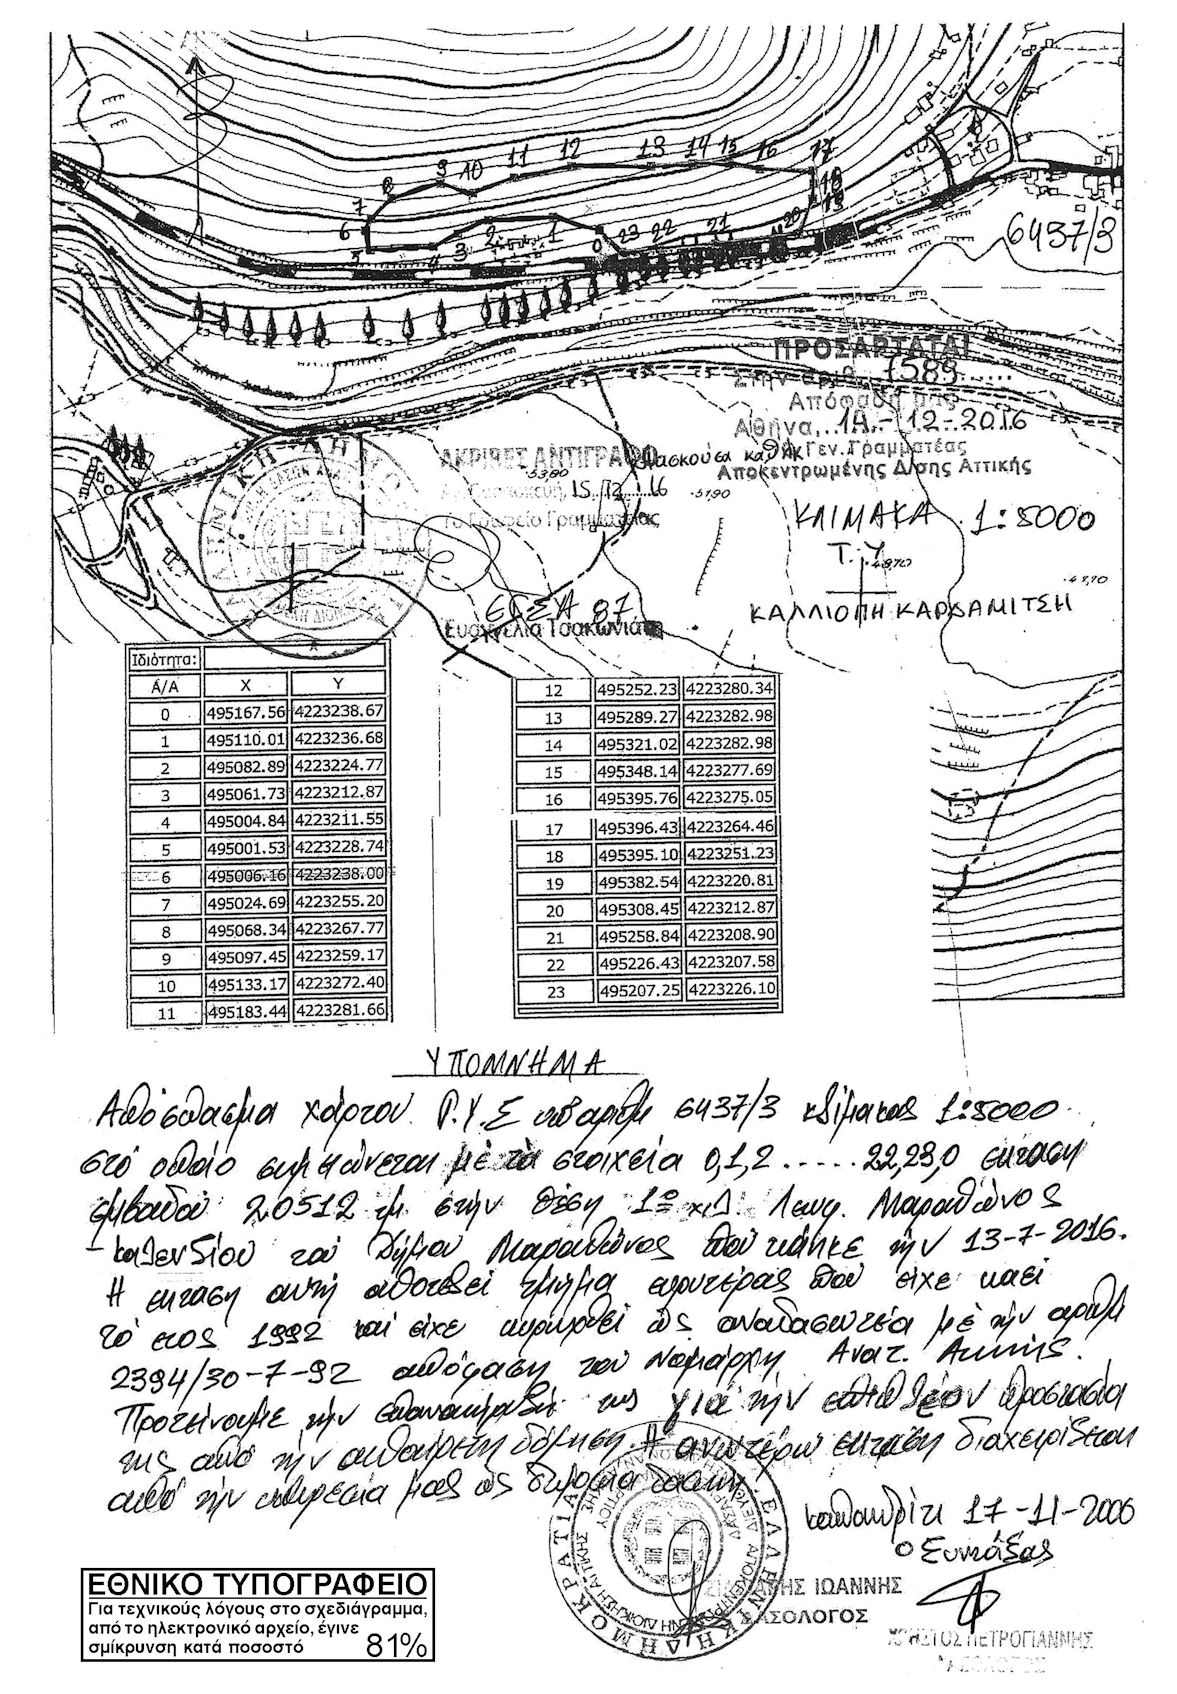 9 10 11 12 13 14 15 16 17
8
7
6
5 4 3 2 1 0 23 22 21 20 19 18
6437/3
ΠΡΟΣΑΡΤΑΤΑΙ
Στην αριθ. 7589......
Απόφαση μας
Αθήνα,..1Α.-12-2016
Γεν. Γραμματέας
Αποκεντρωμένης Δ/σης Αττικής
ΑΚΡΙΒΕΣ ΑΝΤΙΓΡΑΦΟ
53,90
15 12 16
51,90
Το Γραφείο Γραμματείας
ΚΛΙΜΑΚΑ 1:5000
Τ.Υ.
48,70
48,70
ΚΑΛΛΙΟΠΗ ΚΑΡΔΑΜΙΤΣΗ
ΕΓΣΑ 87
Ευαγγελία Τσακωνιάτη
Ιδιότητα:
Α/Α X Y
0 495167.56 4223238.67
1 495110.01 4223236.68
2 495082.89 4223224.77
3 495061.73 4223212.87
4 495004.84 4223211.55
5 495001.53 4223228.74
6 495006.16 4223238.00
7 495024.69 4223255.20
8 495068.34 4223267.77
9 495097.45 4223259.17
10 495133.17 4223272.40
11 495183.44 4223281.66
12 495252.23 4223280.34
13 495289.27 4223282.98
14 495321.02 4223282.98
15 495348.14 4223277.69
16 495395.76 4223275.05
17 495396.43 4223264.46
18 495395.10 4223251.23
19 495382.54 4223220.81
20 495308.45 4223212.87
21 495258.84 4223208.90
22 495226.43 4223207.58
23 495207.25 4223226.10
ΥΠΟΜΝΗΜΑ
Απόσπασμα χάρτου Γ.Υ.Σ υπ αριθμ 6437/3 κλίμακας 1:5000
στό οποίο σημειώνεται μέ τα στοιχεία 0,1,2.....22,23,0 έκταση
εμβαδού 20512 τμ στήν θέση 1ο χιλ. Λεωφ. Μαραθώνος
- Καλεντζίου του Δήμου Μαραθώνος που κάηκε τήν 13-7-2016.
Η έκταση αυτή αποτελεί τμήμα ευρυτέρας που είχε καεί
τό έτος 1992 καί είχε κηρυχθεί ώς αναδασωτέα μέ τήν αριθμ
2394/30-7-92 απόφαση του Νομάρχη Ανατ. Αττικής.
Προτείνουμε τήν επανακήρυξή της γιά τήν επιπλέον προστασία
της από τήν αυθαίρετη δόμηση. Η ανωτέρω έκταση διαχειρίζεται
από τήν υπηρεσία μας ώς δημόσια δασική.
Καπανδρίτι 17-11-2006
Ο Συντάξας
ΙΩΑΝΝΗΣ
ΔΑΣΟΛΟΓΟΣ
ΧΡΗΣΤΟΣ ΠΕΤΡΟΓΙΑΝΝΗΣ
ΔΑΣΟΛΟΓΟΣ
ΕΛΛΗΝΙΚΗ ΔΗΜΟΚΡΑΤΙΑ
ΕΘΝΙΚΟ ΤΥΠΟΓΡΑΦΕΙΟ
Για τεχνικούς λόγους στο σχεδιάγραμμα,
από το ηλεκτρονικό αρχείο, έγινε
σμίκρυνση κατά ποσοστό 81%